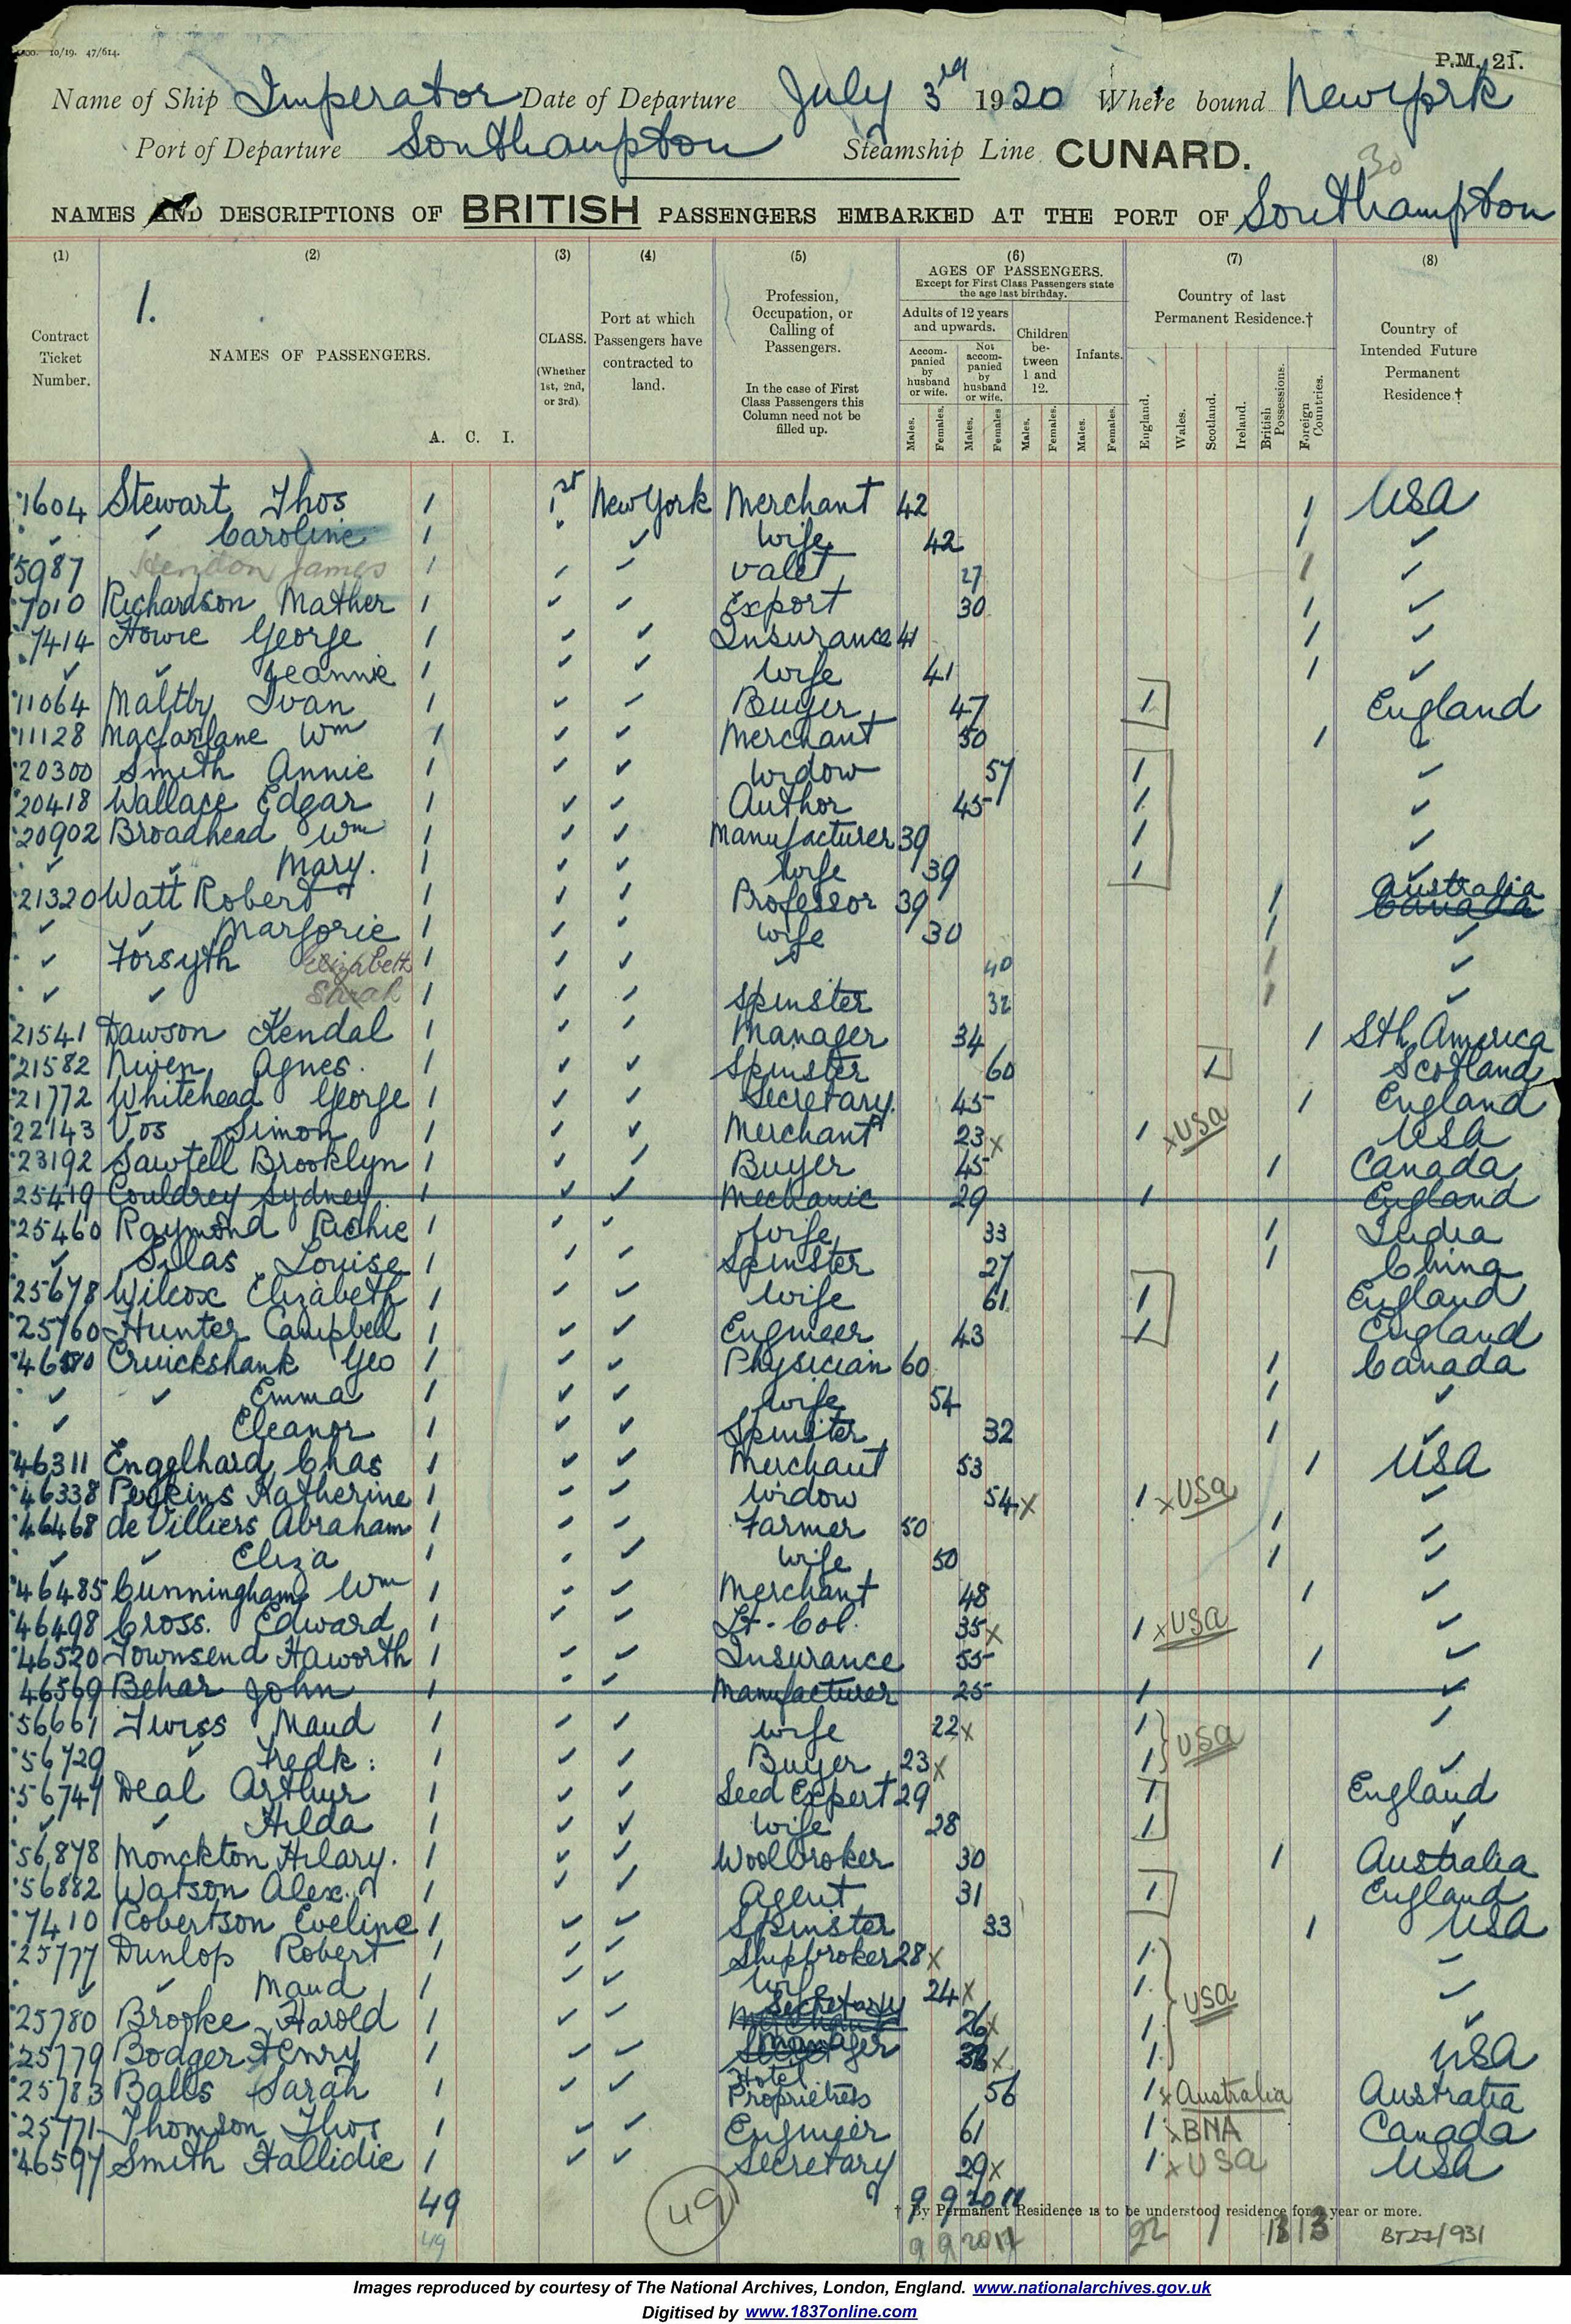 10/19. 47/614.
P.M. 21.
Name of Ship Imperator Date of Departure July 3rd 1920 Where bound New York
Port of Departure Southampton Steamship Line CUNARD.
30
NAMES AND DESCRIPTIONS OF BRITISH PASSENGERS EMBARKED AT THE PORT OF Southampton
(1) (2) (3) (4) (5) (6) (7) (8)
1.
Contract Ticket Number.
NAMES OF PASSENGERS.
A. C. I.
CLASS. (Whether 1st, 2nd, or 3rd).
Port at which Passengers have contracted to land.
Profession, Occupation, or Calling of Passengers.
In the case of First Class Passengers this Column need not be filled up.
AGES OF PASSENGERS.
Except for First Class Passengers state the age last birthday.
Adults of 12 years and upwards.
Accompanied by husband or wife.
Not accompanied by husband or wife.
Children between 1 and 12.
Infants.
Males. Females. Males. Females Males. Females. Males. Females.
Country of last Permanent Residence.†
England. Wales. Scotland. Ireland. British Possessions. Foreign Countries.
Country of Intended Future Permanent Residence †
1604 Stewart Thos 1 1st New York Merchant 42 1 USA
✓ ✓ Caroline 1 ✓ Wife 42 1 ✓
5987 Hendon James 1 ✓ ✓ Valet 27 1 ✓
7010 Richardson Mather 1 ✓ ✓ Export 30 1 ✓
7414 Howie George 1 ✓ ✓ Insurance 41 1 ✓
✓ ✓ Jeannie 1 ✓ ✓ Wife 41 1 ✓
11064 Maltby Ivan 1 ✓ ✓ Buyer 47 1 England
11128 Macfarlane Wm 1 ✓ ✓ Merchant 50 1 ✓
20300 Smith Annie 1 ✓ ✓ Widow 57 1 ✓
20418 Wallace Edgar 1 ✓ ✓ Author 45 1 ✓
20902 Broadhead Wm 1 ✓ ✓ Manufacturer 39 1 ✓
✓ ✓ Mary. 1 ✓ ✓ Wife 39 1 ✓
21320 Watt Robert 1 ✓ ✓ Professor 39 1 Australia Canada
✓ ✓ Marjorie 1 ✓ ✓ Wife 30 1 ✓
✓ Forsyth Elizabeth 1 ✓ ✓ ✓ 40 1 ✓
✓ ✓ Sarah 1 ✓ ✓ Spinster 32 1 ✓
21541 Dawson Kendal 1 ✓ ✓ Manager 34 1 Sth America
21582 Niven Agnes. 1 ✓ ✓ Spinster 60 1 Scotland
21772 Whitehead George 1 ✓ ✓ Secretary. 45 1 England
22143 Vos Simon 1 ✓ ✓ Merchant 23 x 1 x USA USA
23192 Sawtell Brooklyn 1 ✓ ✓ Buyer 45 1 Canada
25419 Couldrey Sydney 1 ✓ ✓ Mechanic 29 1 England
25460 Raymond Richie 1 ✓ ✓ Wife 33 1 India
✓ Silas Louise 1 ✓ ✓ Spinster 27 1 China
25678 Wilcox Elizabeth 1 ✓ ✓ Wife 61 1 England
25760 Hunter Campbell 1 ✓ ✓ Engineer 43 1 England
Cruickshank Geo 1 ✓ ✓ Physician 60 1 Canada
✓ ✓ Emma 1 ✓ ✓ Wife 54 1 ✓
✓ Eleanor 1 ✓ ✓ Spinster 32 1 ✓
46311 Engelhard Chas 1 ✓ ✓ Merchant 53 1 USA
46338 Perkins Katherine 1 ✓ ✓ Widow 54 x 1 x USA ✓
46468 de Villiers Abraham 1 ✓ ✓ Farmer 50 1 ✓
✓ ✓ Eliza 1 ✓ ✓ Wife 50 1 ✓
46485 Cunningham Wm 1 ✓ ✓ Merchant 48 1 ✓
46498 Cross. Edward 1 ✓ ✓ Lt-Col. 35 x 1 x USA ✓
46520 Townsend Haworth 1 ✓ ✓ Insurance 55 1 ✓
46569 Behar John 1 ✓ ✓ Manufacturer 25 1 ✓
56661 Twiss Maud 1 ✓ ✓ Wife 22 x 1 ✓
56729 ✓ Fredk: 1 ✓ ✓ Buyer 23 x 1 USA ✓
56747 Deal Arthur 1 ✓ ✓ Seed Expert 29 1 England
✓ ✓ Hilda 1 ✓ ✓ Wife 28 1 ✓
56878 Monckton Hilary. 1 ✓ ✓ Woolbroker 30 1 Australia
56882 Watson Alex. 1 ✓ ✓ Agent 31 1 England
7410 Robertson Eveline 1 ✓ ✓ Spinster 33 1 USA
25777 Dunlop Robert 1 ✓ ✓ Shipbroker 28 x 1 ✓
✓ ✓ Maud 1 ✓ ✓ Wife 24 x 1 USA ✓
25780 Brooke Harold 1 ✓ ✓ Secretary Merchant 26 x 1 ✓
25779 Bodger Henry 1 ✓ ✓ Manager x 1 USA
25783 Balls Sarah 1 ✓ ✓ Hotel Proprietress 56 1 x Australia Australia
25771 Thomson Thos 1 ✓ ✓ Engineer 61 1 x BNA Canada
46597 Smith Hallidie 1 ✓ ✓ Secretary 29 x 1 x USA USA
49 49 9 9 20 11
† By Permanent Residence is to be understood residence for a year or more.
49 9 9 20 11 22 1 13 13 BT27/931
Images reproduced by courtesy of The National Archives, London, England. www.nationalarchives.gov.uk
Digitised by www.1837online.com